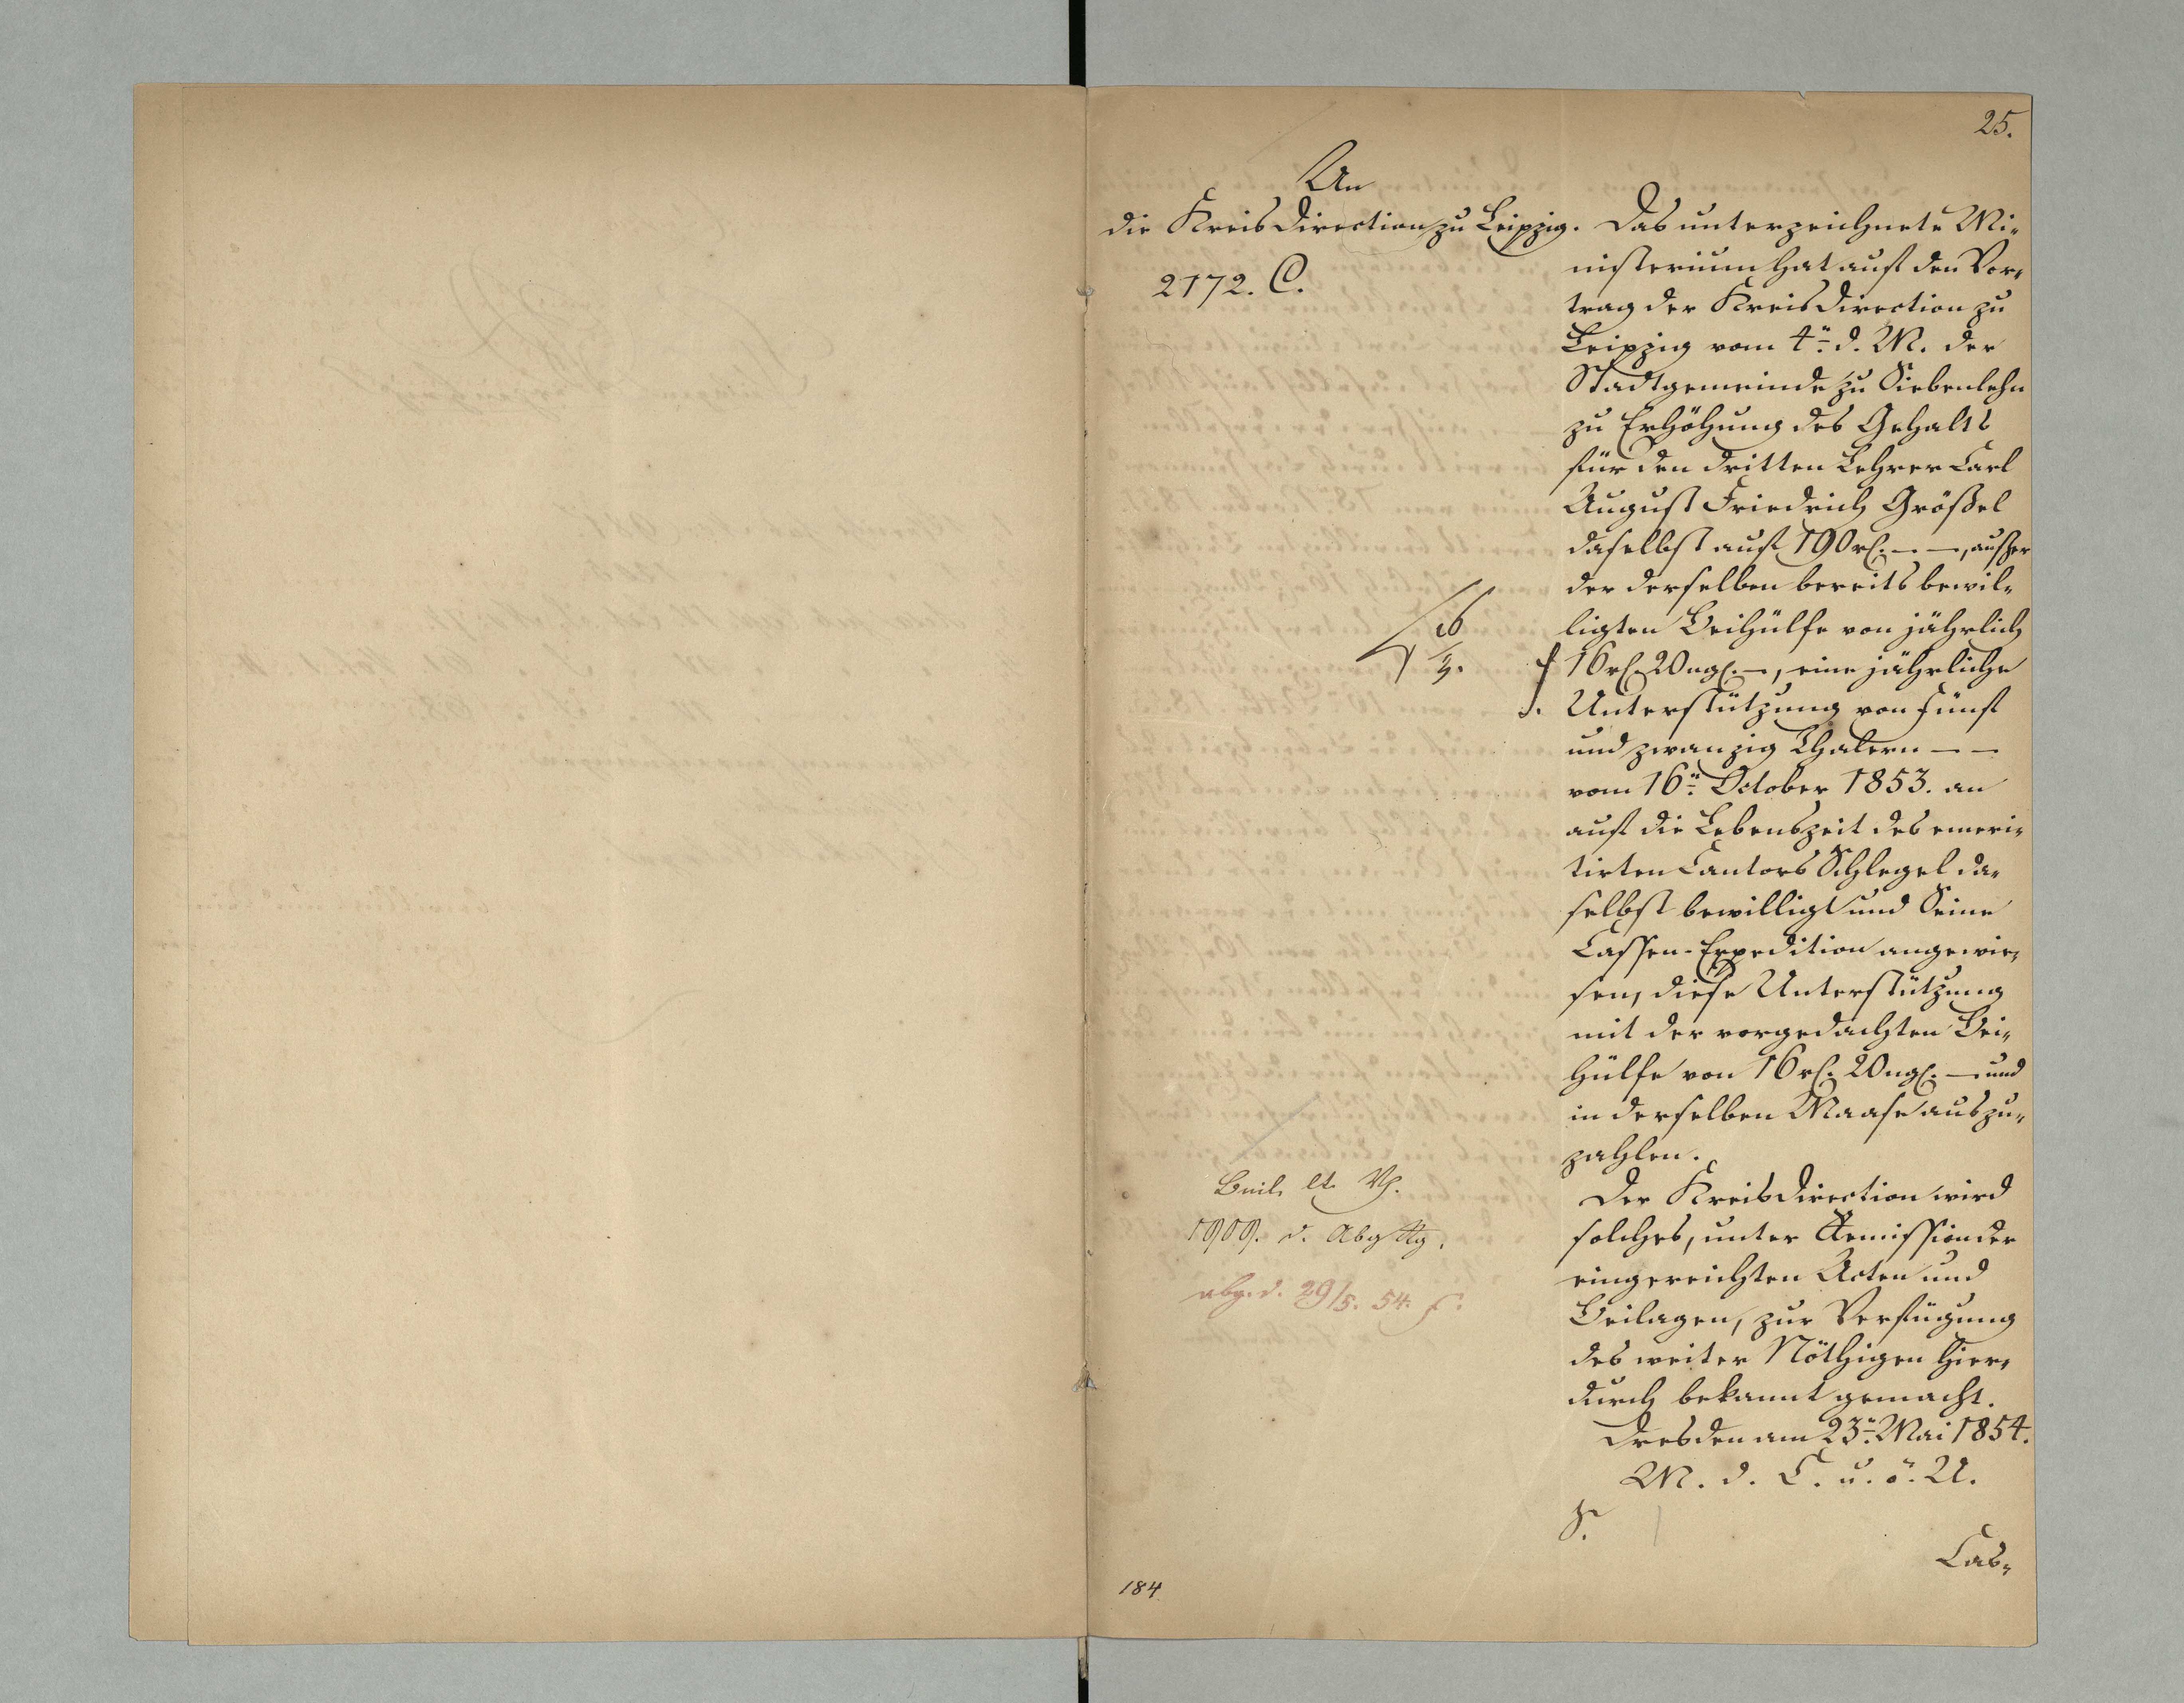 25.
An
die Kreisdirection zu Leipzig.
2172. C.
Das unterzeichnete Mi-
nisterium hat auf den Vor-
trag der Kreisdirection zu
Leipzig vom 4n. d. M. der
Stadtgemeinde zu Siebenlehn
zu Erhöhung des Gehalts
für den dritten Lehrer Carl
August Friedrich Größel
daselbst auf 190 rl. — —, außer
der derselben bereits bewil-
ligten Beihülfe von jährlich
16 rl. 20 ngl. —, eine jährliche
Unterstützung von Fünf
und zwanzig Thalern — —
vom 16n. October 1853. an
auf die Lebenszeit des emeri-
tirten Cantors Schlegel da-
selbst bewilligt und Seine
Cassen-Expedition angewie-
sen, diese Unterstützung
mit der vorgedachten Bei-
hülfe von 16 rl. 20 ngl. — und
in derselben Maase auszu-
zahlen.
Der Kreisdirection wird
solches, unter Remission der
eingereichten Acten und
Beilagen, zur Verfügung
des weiter Nöthigen hier-
durch bekannt gemacht.
Dresden am 23n. Mai 1854.
M. d. C. u. ö. U.
Cas-
1909. d.
abg. d. 29/5. 54.
184